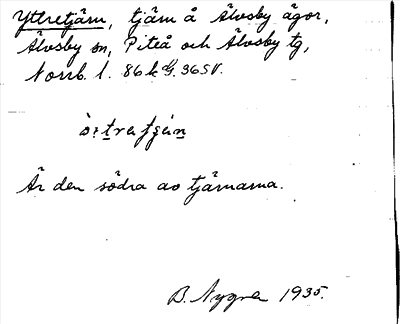 Yttretjärn, tjärn å Älvsby ägor,
Älvsby sn, Piteå och Älvsby tg,
Norrb. l. 86 k
Är den södra av tjärnarna.
B. Nygren 1935.